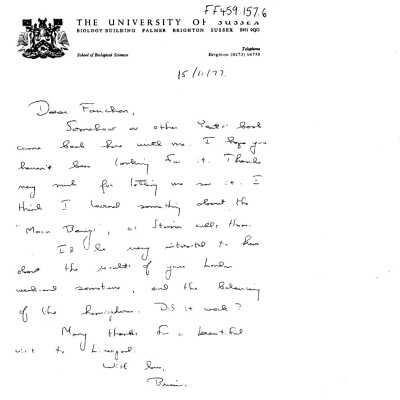 FF459 157.6
THE UNIVERSITY OF SUSSEX
BIOLOGY BUILDING FALMER BRIGHTON SUSSEX BN1 9QG
School of Biological Sciences
Telephone
Brighton (0273) 66755
15/11/77.
Dear Fanchon,
Somehow or other Yeats book
came back here with me. I hope you
haven't been looking for it. Thanks
very much for letting me see it. I
think I learned something about the
"Moon Beings", as Steiner calls them.
I'd be very interested to hear
about the results of your London
weekend sometime, and the balancing
of the hemispheres. Did it work?
Many thanks for a beautiful
visit to
With love,
Brian.